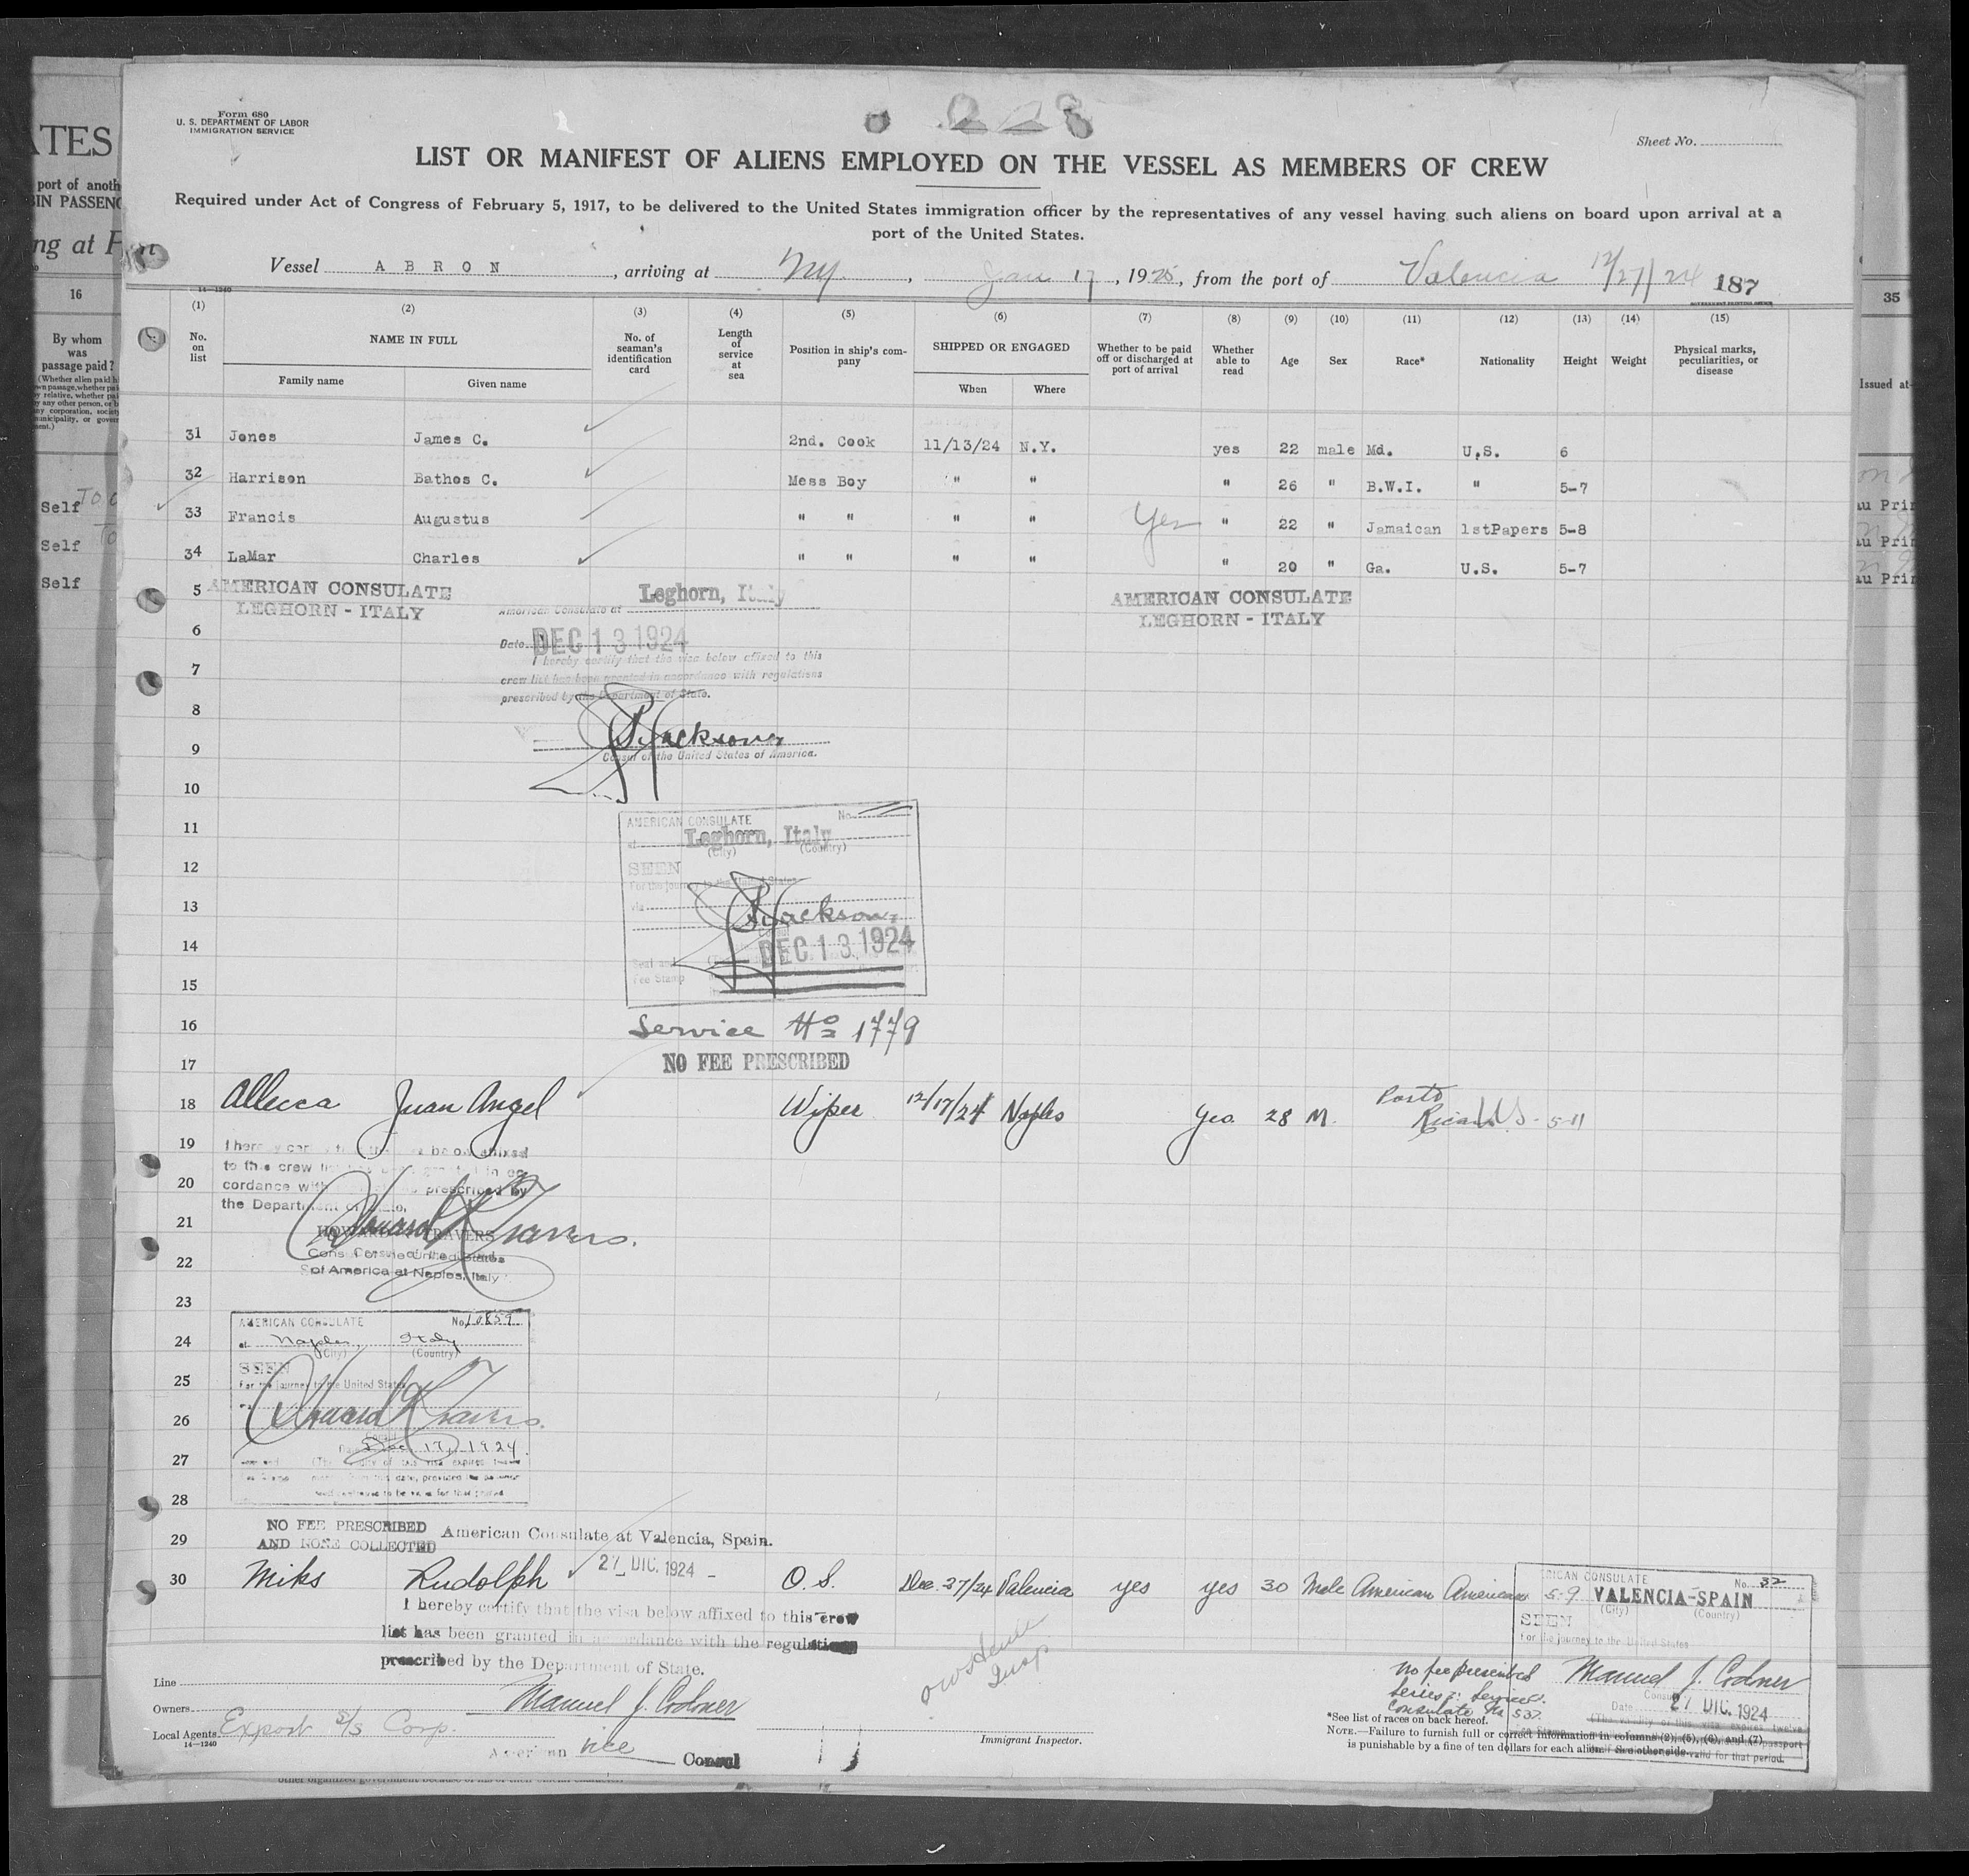 Form 680
U. S. DEPARTMENT OF LABOR
IMMIGRATION SERVICE
228
Sheet No.
LIST OR MANIFEST OF ALIENS EMPLOYED ON THE VESSEL AS MEMBERS OF CREW
Required under Act of Congress of February 5, 1917, to be delivered to the United States immigration officer by the representatives of any vessel having such aliens on board upon arrival at a
port of the United States.
Vessel ABRON, arriving at NY, Jan 17, 1925, from the port of Valencia 12/27/24
187
14—1240
(1) (2) (3) (4) (5) (6) (7) (8) (9) (10) (11) (12) (13) (14) (15)
No. on list
NAME IN FULL
Family name Given name
No. of seaman's identification card
Length of service at sea
Position in ship's company
SHIPPED OR ENGAGED
When Where
Whether to be paid off or discharged at port of arrival
Whether able to read
Age Sex Race* Nationality Height Weight
Physical marks, peculiarities, or disease
31 Jones James C. 2nd. Cook 11/13/24 N.Y. yes 22 male Md. U.S. 6
32 Harrison Bathos C. Mess Boy " " " 26 " B.W.I. " 5-7
33 Francis Augustus " " " " Yes " 22 " Jamaican 1stPapers 5-8
34 LaMar Charles " " " " " 20 " Ga. U.S. 5-7
5 AMERICAN CONSULATE
LEGHORN - ITALY
American Consulate at Leghorn, Italy
AMERICAN CONSULATE
LEGHORN - ITALY
6
Date DEC 13 1924
I hereby certify that the visa below affixed to this
7
crew list has been granted in accordance with regulations
prescribed by the Department of State.
8
9
Consul of the United States of America.
10
11
AMERICAN CONSULATE No.
at Leghorn, Italy
(City) (Country)
12
SEEN
For the journey to the United States
13
via
14
DEC 13 1924
Seal and
Fee Stamp
15
16 Service No 1779
17 NO FEE PRESCRIBED
18 Allecca Juan Angel Wiper 12/17/24 Naples Yes. 28 M. Porto Rican US. 5-11
19
to this crew
20
cordance with prescribed by
the Department of
21 Howard K Travers.
22
of America at Naples, Italy
23
24
AMERICAN CONSULATE No. 10859
at Naples, Italy
(City) (Country)
SEEN
25
For the journey to the United States
26 Howard K Travers.
Dec 17, 1924
27
28
29
NO FEE PRESCRIBED
AND NONE COLLECTED
American Consulate at Valencia, Spain.
27 DIC. 1924
30 Miks Rudolph O.S. Dec. 27/24 Valencia yes yes 30 Male American American 5-9
I hereby certify that the visa below affixed to this crew
list has been granted in accordance with the regulations
prescribed by the Department of State.
AMERICAN CONSULATE No. 32
VALENCIA-SPAIN
(City) (Country)
SEEN
For the journey to the United States
Manuel J. Codoner
27 DIC. 1924
No fee prescribed
Consulate No 537.
Line
Owners
Manuel J. Codoner
Local Agents Export S/S Corp.
14—1240
American vice Consul
Immigrant Inspector.
*See list of races on back hereof.
NOTE.—Failure to furnish full or correct information in columns (2), (5), (6), and (7)
is punishable by a fine of ten dollars for each alien. See other side
ATES
port of anoth
BIN PASSENG
ng at
16
By whom
was
passage paid?
Self
Self
Self
35
Issued at
au Prin
au Prin
au Prin